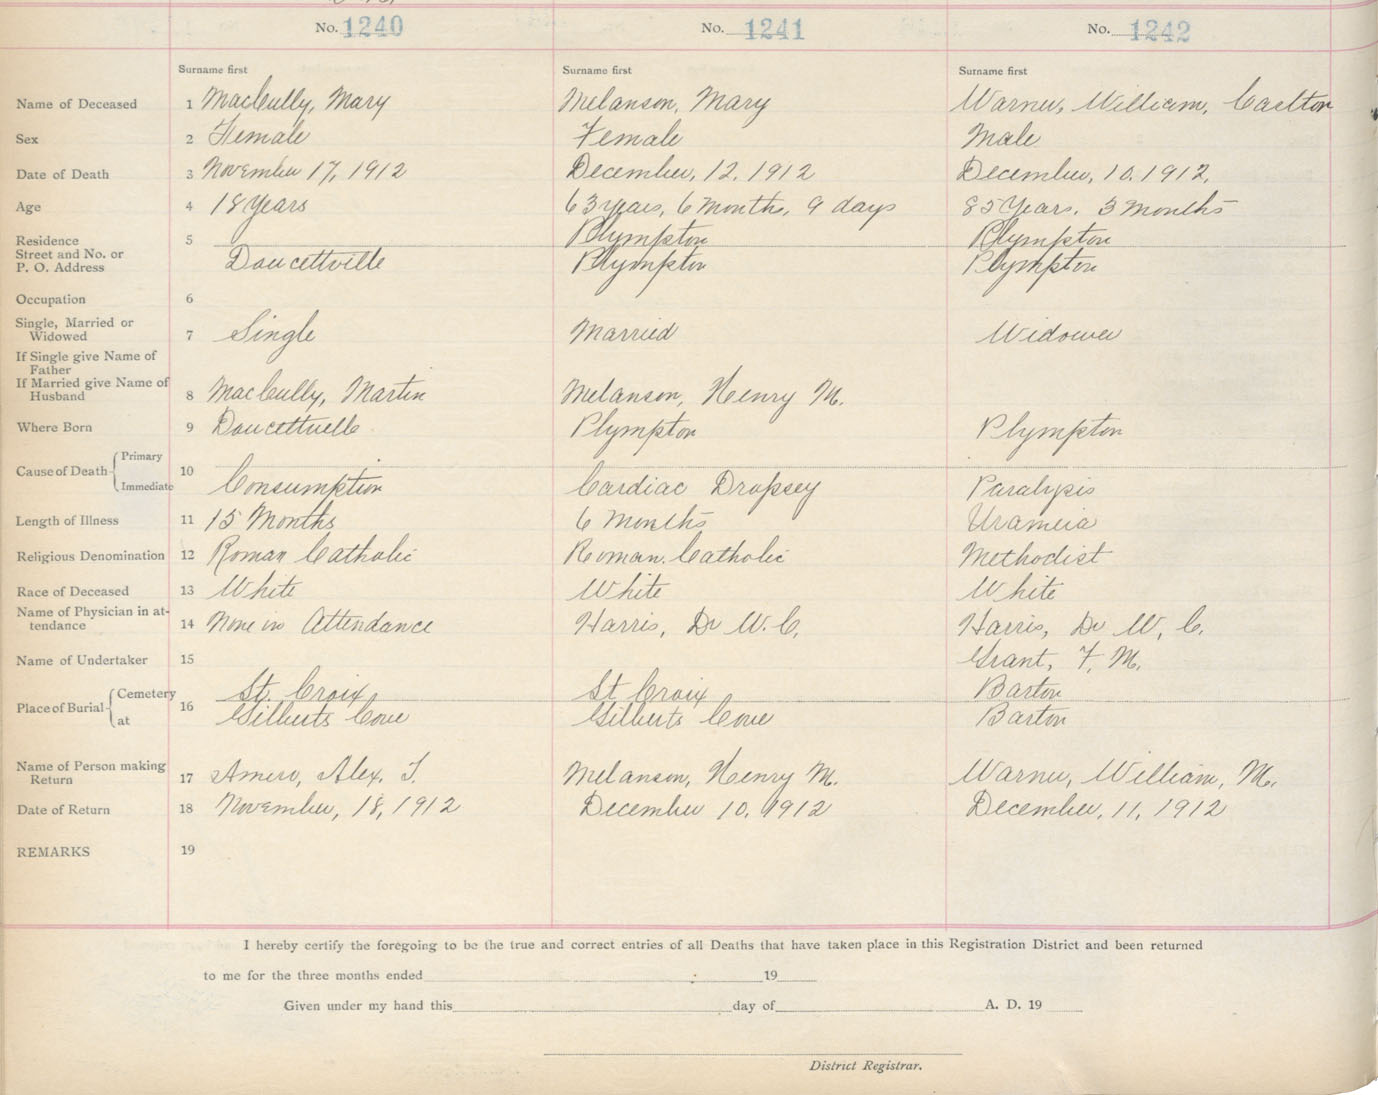 No. 1240 No. 1241 No. 1242
Surname first Surname first Surname first
Name of Deceased 1 MacCully, Mary Melanson, Mary Warner, William, Carlton
Sex 2 Female Female Male
Date of Death 3 November 17, 1912 December, 12, 1912 December, 10, 1912,
Age 4 18 Years 63 years, 6 months, 9 days 85 Years, 3 months
Residence 5 Plympton Plympton
Street and No. or
P. O. Address Doucettville Plympton Plympton
Occupation 6
Single, Married or
Widowed 7 Single Married Widower
If Single give Name of
Father
If Married give Name of
Husband 8 MacCully, Martin Melanson, Henry M.
Where Born 9 Doucettville Plympton Plympton
Cause of Death Primary 10
Immediate Consumption Cardiac Dropsey Paralypis
Length of Illness 11 15 Months 6 months Urameia
Religious Denomination 12 Roman Catholic Roman. Catholic Methodist
Race of Deceased 13 White White White
Name of Physician in at-
tendance 14 None in Attendance Harris, Dr W. C, Harris, Dr W, C.
Name of Undertaker 15 Grant, F. M.
Place of Burial Cemetery 16 St. Croix St Croix Barton
at Gilberts Cove Gilberts Cove Barton
Name of Person making
Return 17 Amero, Alex. Melanson, Henry M. Warner, William, M.
Date of Return 18 November, 18, 1912 December 10, 1912 December, 11, 1912
REMARKS 19
I hereby certify the foregoing to be the true and correct entries of all Deaths that have taken place in this Registration District and been returned
to me for the three months ended 19
Given under my hand this day of A. D. 19
District Registrar.